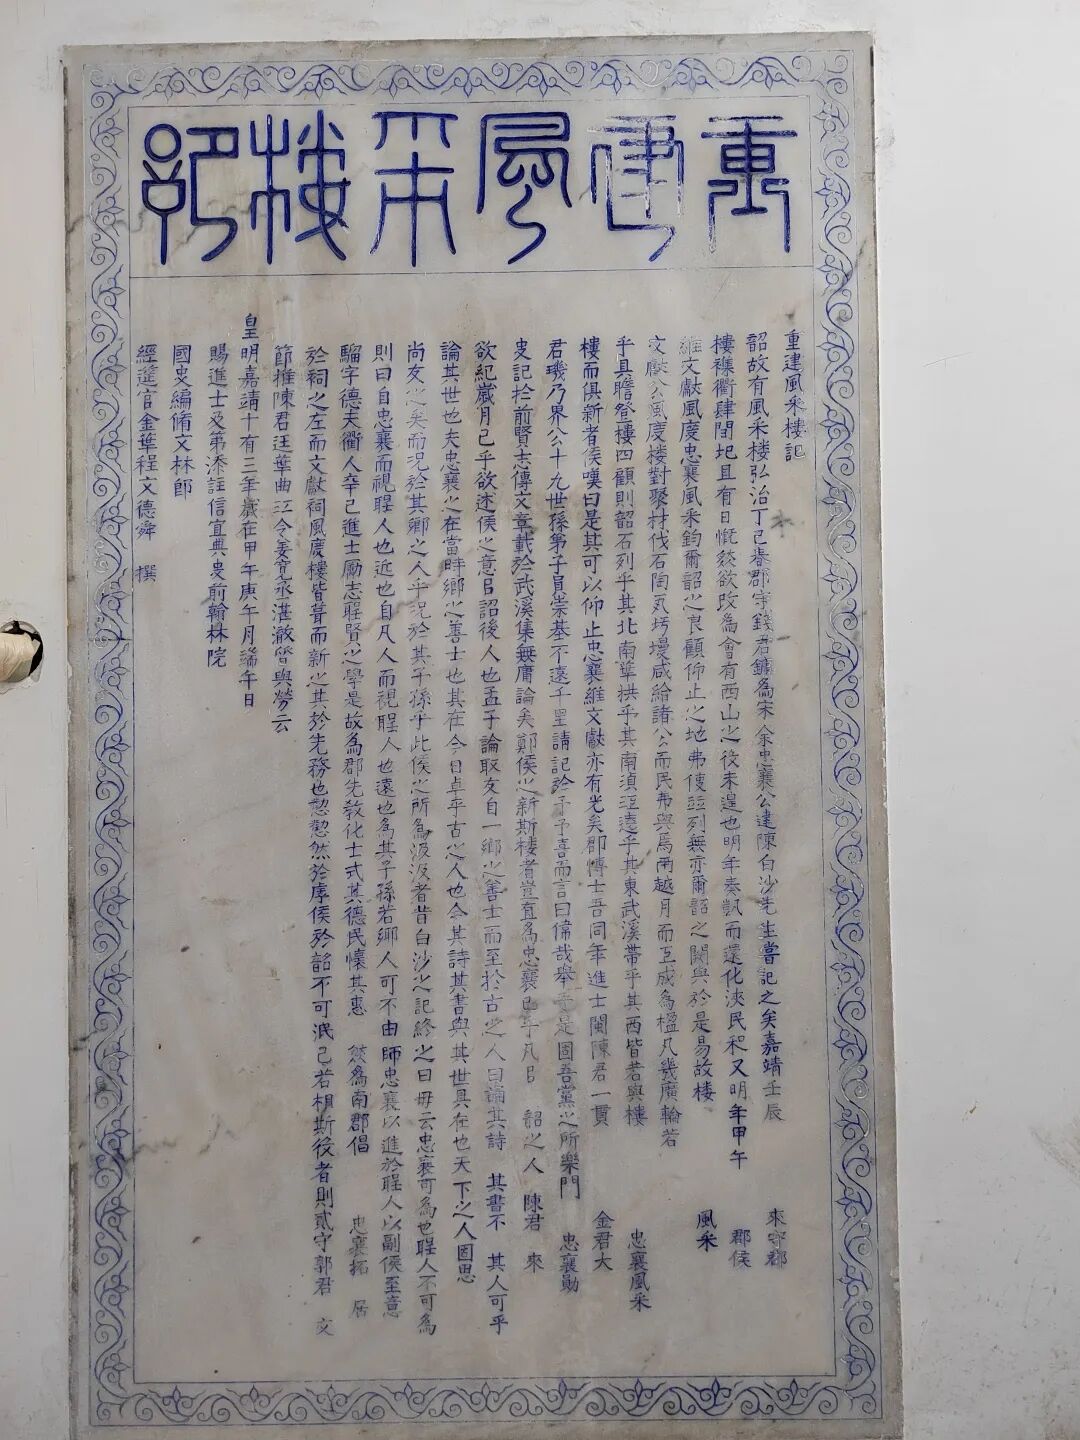 重建風采樓記
重建風采樓記
韶故有風采楼弘治丁巳春郡守錢君鏞為宋余忠襄公建陳白沙先生嘗記之矣嘉靖壬辰 來守郡
樓襍衢肆閈圯且有日慨然欲改為會有西山之役未遑也明年奏凱而還化浹民和又明年甲午 郡侯
維文獻風度忠襄風采鈞爾韶之良顧仰止之地弗使並列無亦爾韶之闕與於是易故楼 風采
文獻公風度楼對聚材伐石陶瓦圬墁咸給諸公而民弗與焉兩越月而亙成為楹凡幾廣輪若
乎具瞻登樓四顧則韶石列乎其北南華拱乎其南湞江遶乎其東武溪帶乎其西皆若與樓 忠襄風采
樓而俱新者侯嘆曰是其可以仰止忠襄維文獻亦有光矣郡博士吾同年進士閩陳君一貫 金君大
君璣乃畀公十九世孫弟子員崇基不遠千里請記於予予喜而言曰偉哉舉乎是固吾黨之所樂門 忠襄勛
史記於前賢志傳文章載於武溪集無庸論矣鄭侯之新斯樓者豈直為忠襄已乎凡曰 韶之人 陳君 來
欲紀歲月已乎欲述侯之意召詔後人也孟子論取友自一鄉之善士而至於古之人曰論其詩 其書不 其人可乎
論其世也夫忠襄之在當時鄉之善士也其在今日卓乎古之人也今其詩其書與其世具在也天下之人固思
尚友之矣而況於其鄉之人乎況於其子孫乎此侯之所為汲汲者昔白沙之記終之曰毋云忠襄可為也聖人不可為
則曰自忠襄而視聖人也近也自凡人而視聖人也遠也為其子孫若鄉人可不由師忠襄以進於聖人以副侯至意
騮字德夫衢人辛巳進士勵志聖賢之學是故為郡先教化士式其德民懷其惠 然為南郡倡 忠襄拓 居
於祠之左而文獻祠風度樓皆葺而新之其於先務也懃懃然於庠侯於韶不可泯已若相斯役者則貳守郭君 文
節推陳君廷華曲江令姜寬丞湛澂督與勞云
皇明嘉靖十有三年歲在甲午庚午月端午日
賜進士及第添註信宜典史前翰林院
國史編脩文林郎
經筵官金華程文德舜 撰